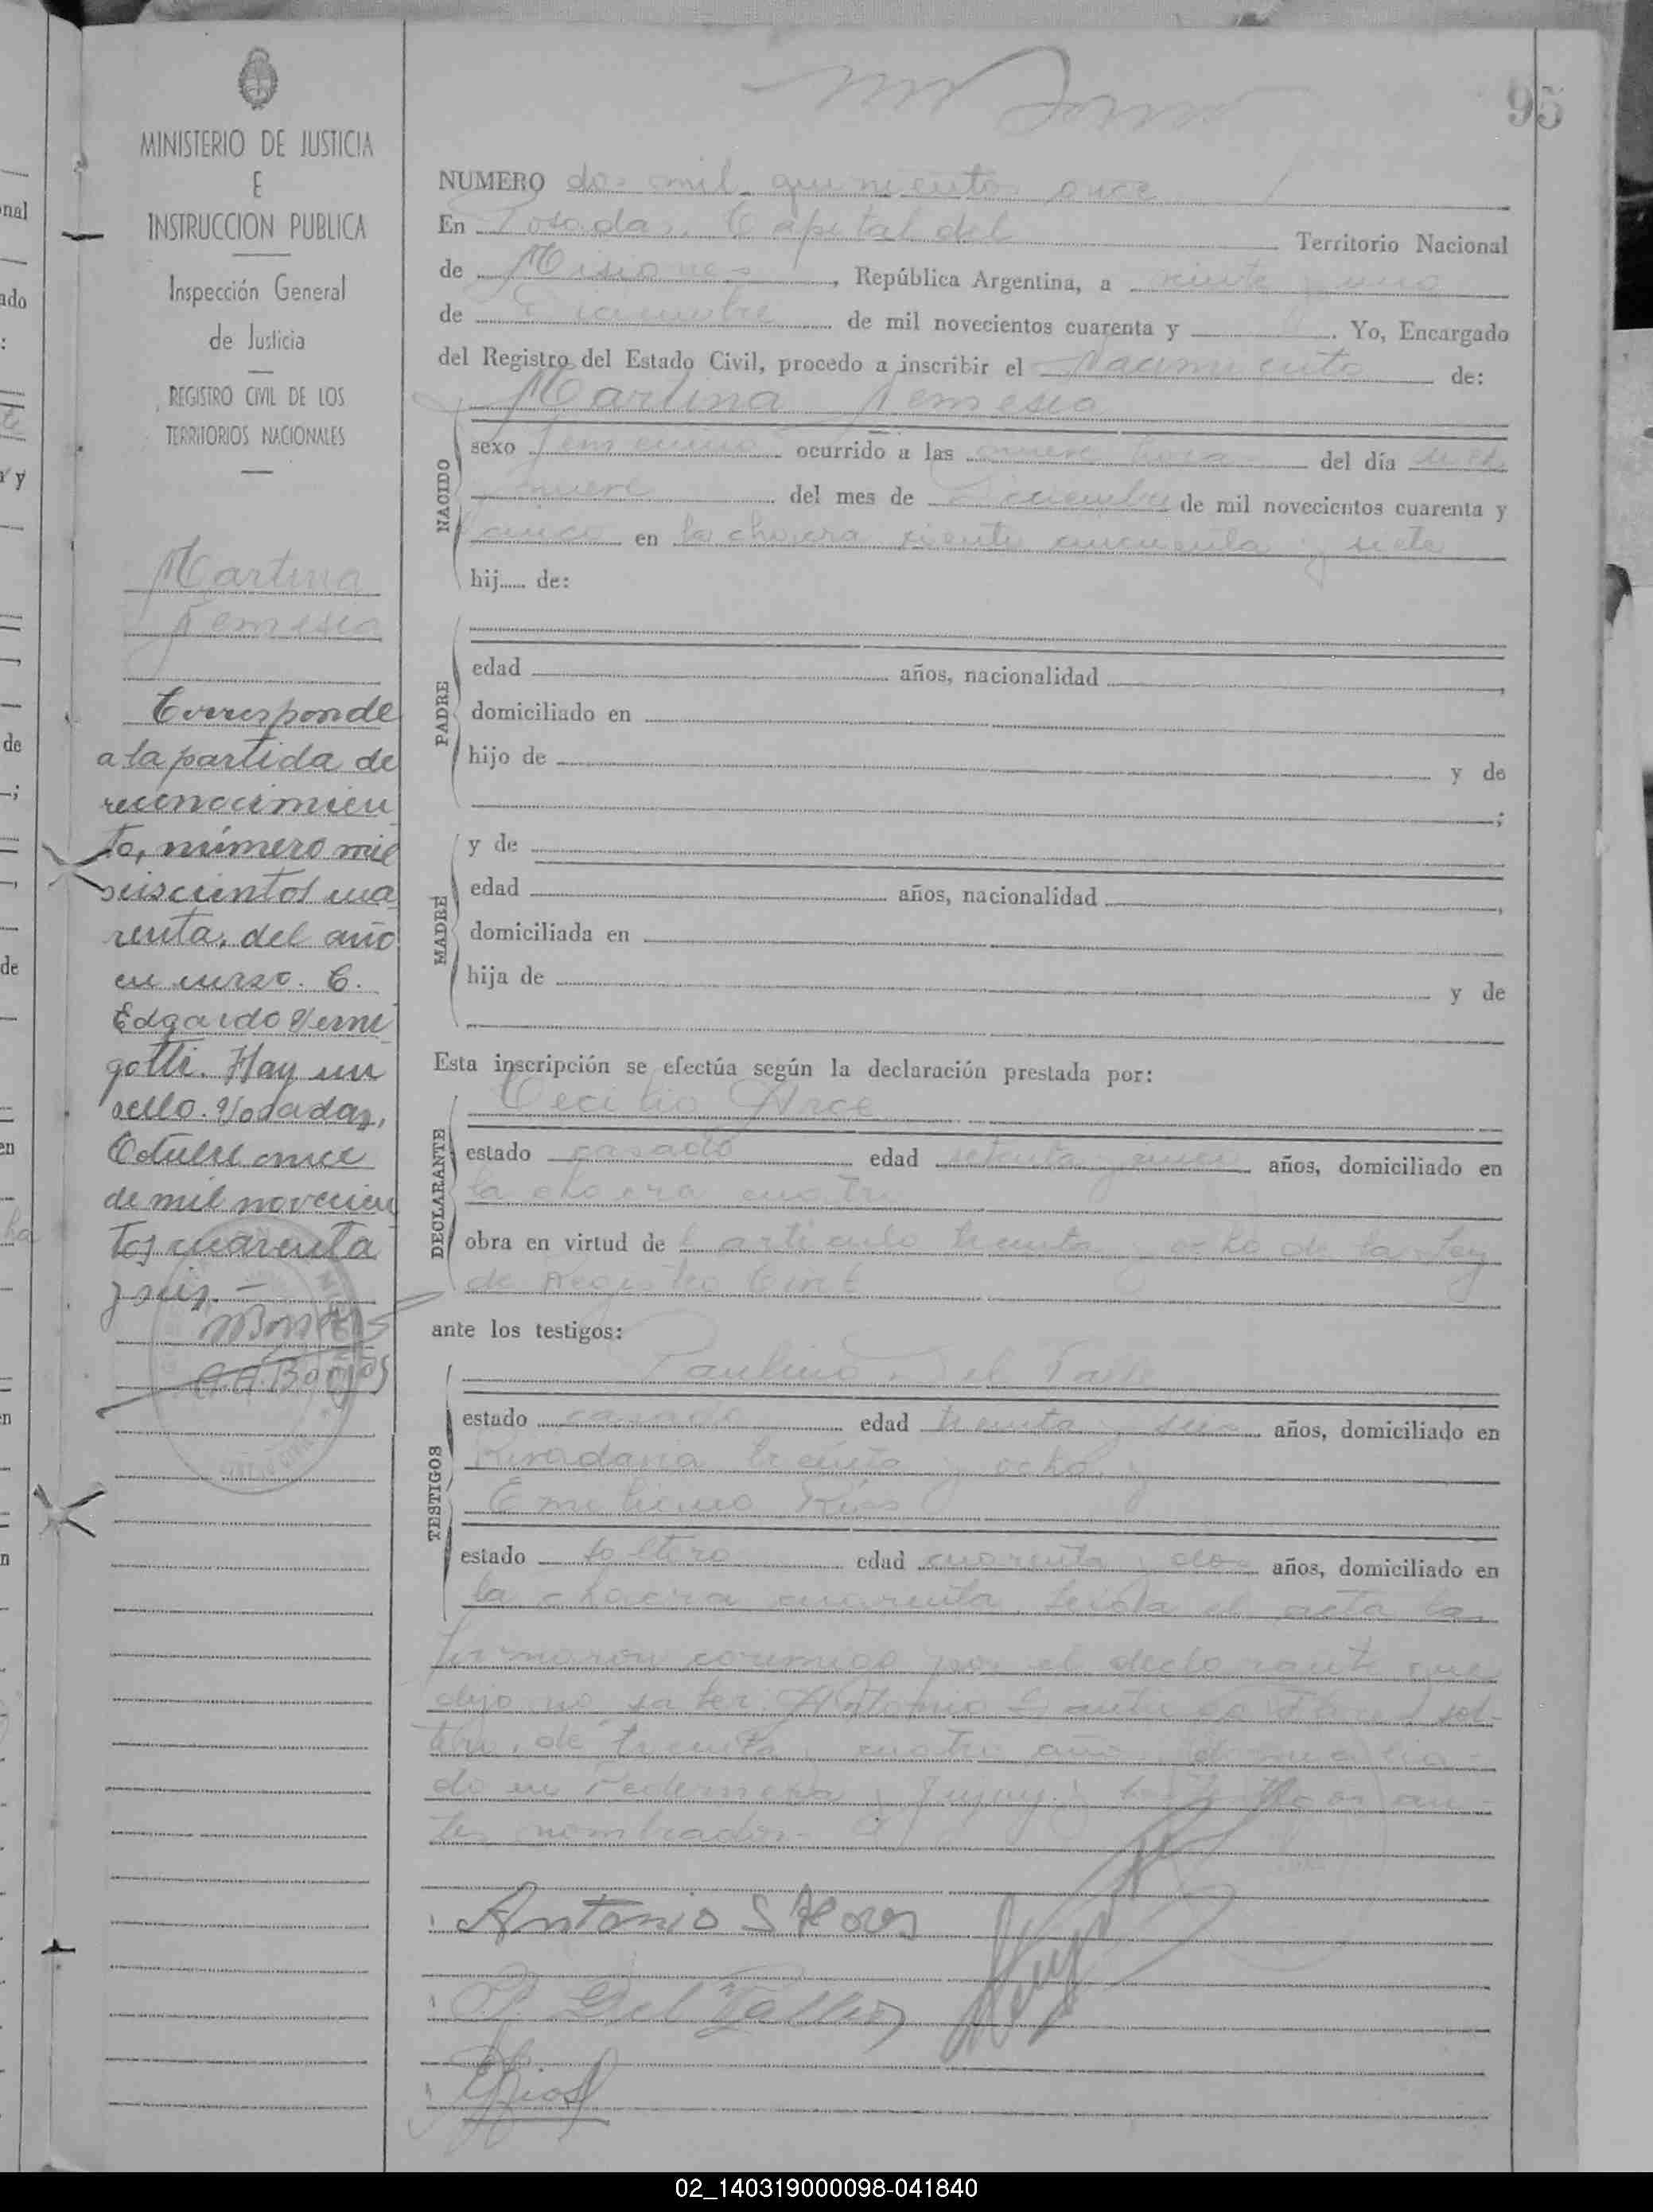 95
MINISTERIO DE JUSTICIA
E
INSTRUCCION PUBLICA
Inspección General
de Justicia
REGISTRO CIVIL DE LOS
TERRITORIOS NACIONALES
Martina
Nemesia
Corresponde
a la partida de
reconocimien
to, número mil
seiscientos cua
renta, del año
en curso. C.
Edgardo Verni
gotti. Hay un
sello. Posadas,
Octubre once
de mil novecien
tos cuarenta
y seis.-
NUMERO dos mil quinientos once
En Posadas, Capital del Territorio Nacional
de Misiones, República Argentina, a veinte y uno
de Diciembre de mil novecientos cuarenta y . Yo, Encargado
del Registro del Estado Civil, procedo a inscribir el Nacimiento de:
Martina Nemesia
NACIDO
sexo femenino ocurrido a las nueve horas del día diez
nueve del mes de Diciembre de mil novecientos cuarenta y
cinco en la chacra ciento cincuenta y siete
hij..... de:
PADRE
edad años, nacionalidad ,
domiciliado en
hijo de y de
;
MADRE
y de
edad años, nacionalidad ,
domiciliada en
hija de y de
Esta inscripción se efectúa según la declaración prestada por:
DECLARANTE
Cecilio Arce
estado casado edad setenta y cinco años, domiciliado en
la chacra cuatro
obra en virtud de l articulo treinta y ocho de la Ley
de Registro Civil
ante los testigos:
TESTIGOS
Paulino Del Valle
estado casado edad treinta y seis años, domiciliado en
Rivadavia treinta y ocho y
Emiliano Rios
estado soltero edad cuarenta y dos años, domiciliado en
la chacra cuarenta. Leida el acta la
firmaron conmigo por el declarante que
dijo no saber, Antonio sol-
tero, de treinta y cuatro años, domicilia-
do en Pedernera y Jujuy y los testigos an-
tes nombrados.-
Antonio S
P. Del Valle
ERios
02_140319000098-041840